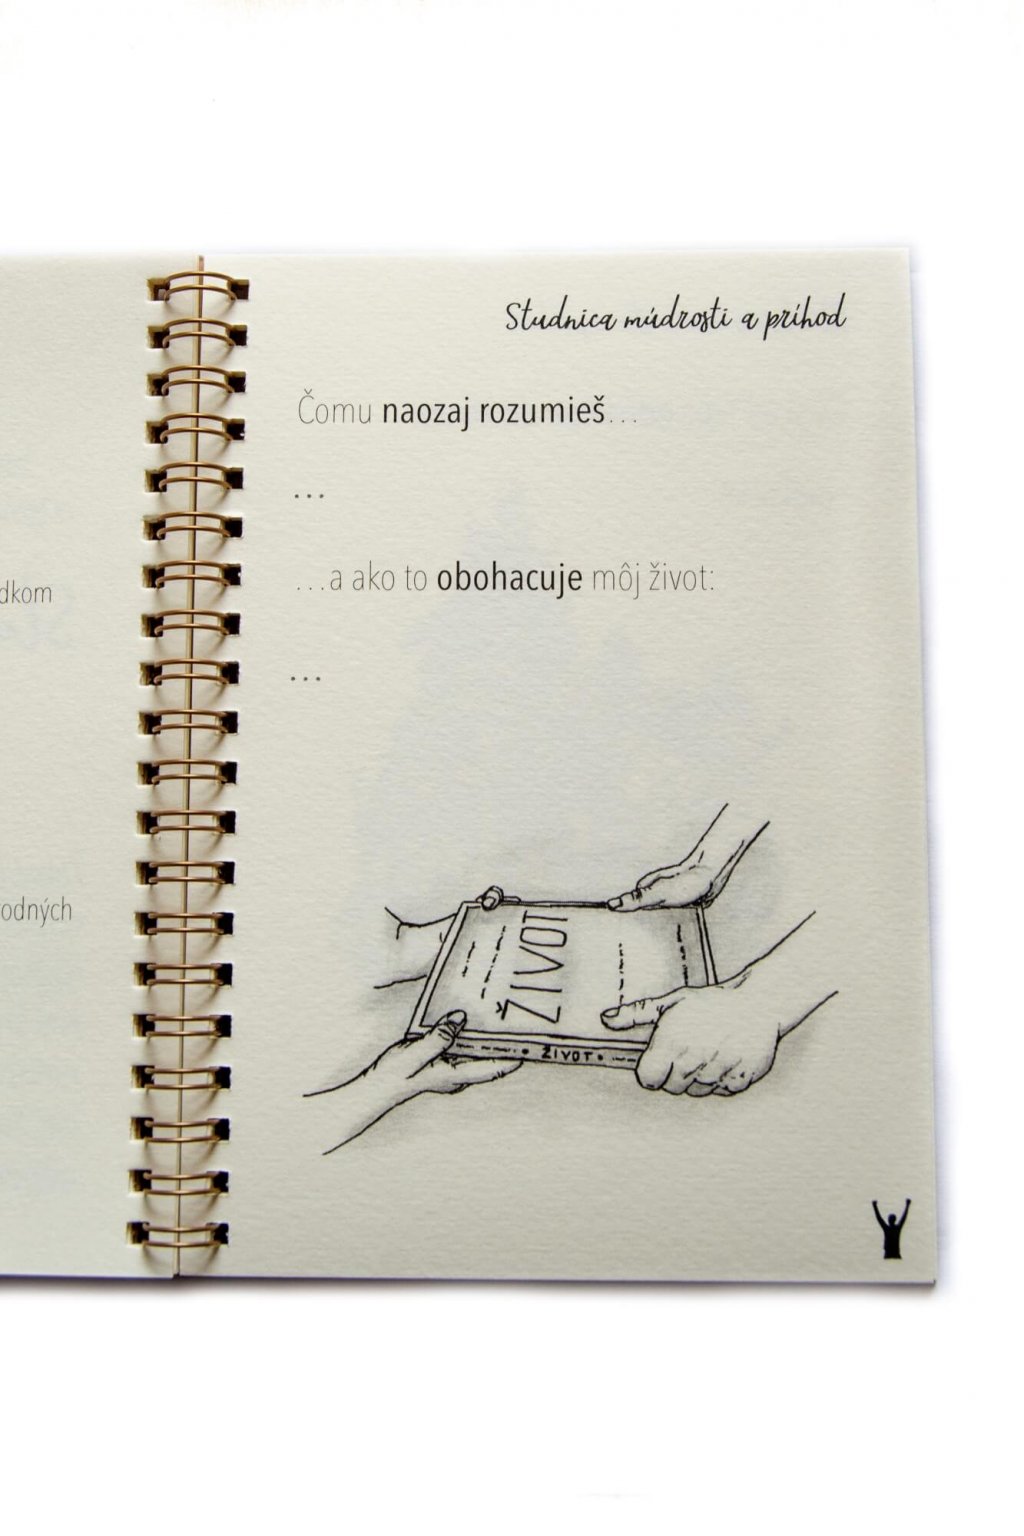 dkom
rodných
Studnica múdrosti a príhod
Čomu naozaj rozumieš...
...
...a ako to obohacuje môj život:
...
ŽIVOT
ŽIVOT